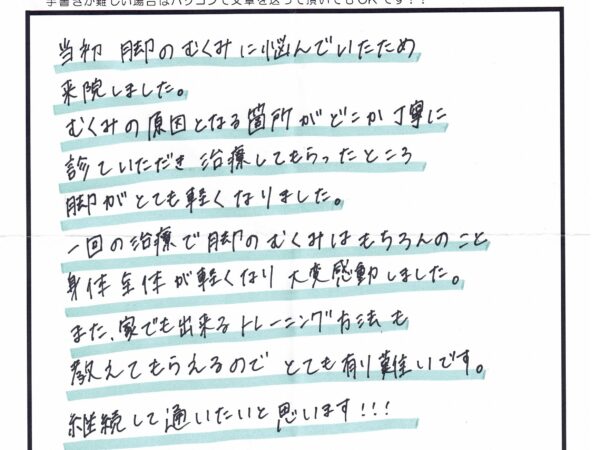 手書きが難しい場合はパソコンで文章を送って頂いてもOKです！！
当初 脚のむくみに悩んでいたため
来院しました。
むくみの原因となる箇所がどこか丁寧に
診ていただき 治療してもらったところ
脚がとても軽くなりました。
一回の治療で脚のむくみはもちろんのこと
身体全体が軽くなり 大変感動しました。
また、家でも出来るトレーニング方法も
教えてもらえるので とても有り難いです。
継続して通いたいと思います!!!